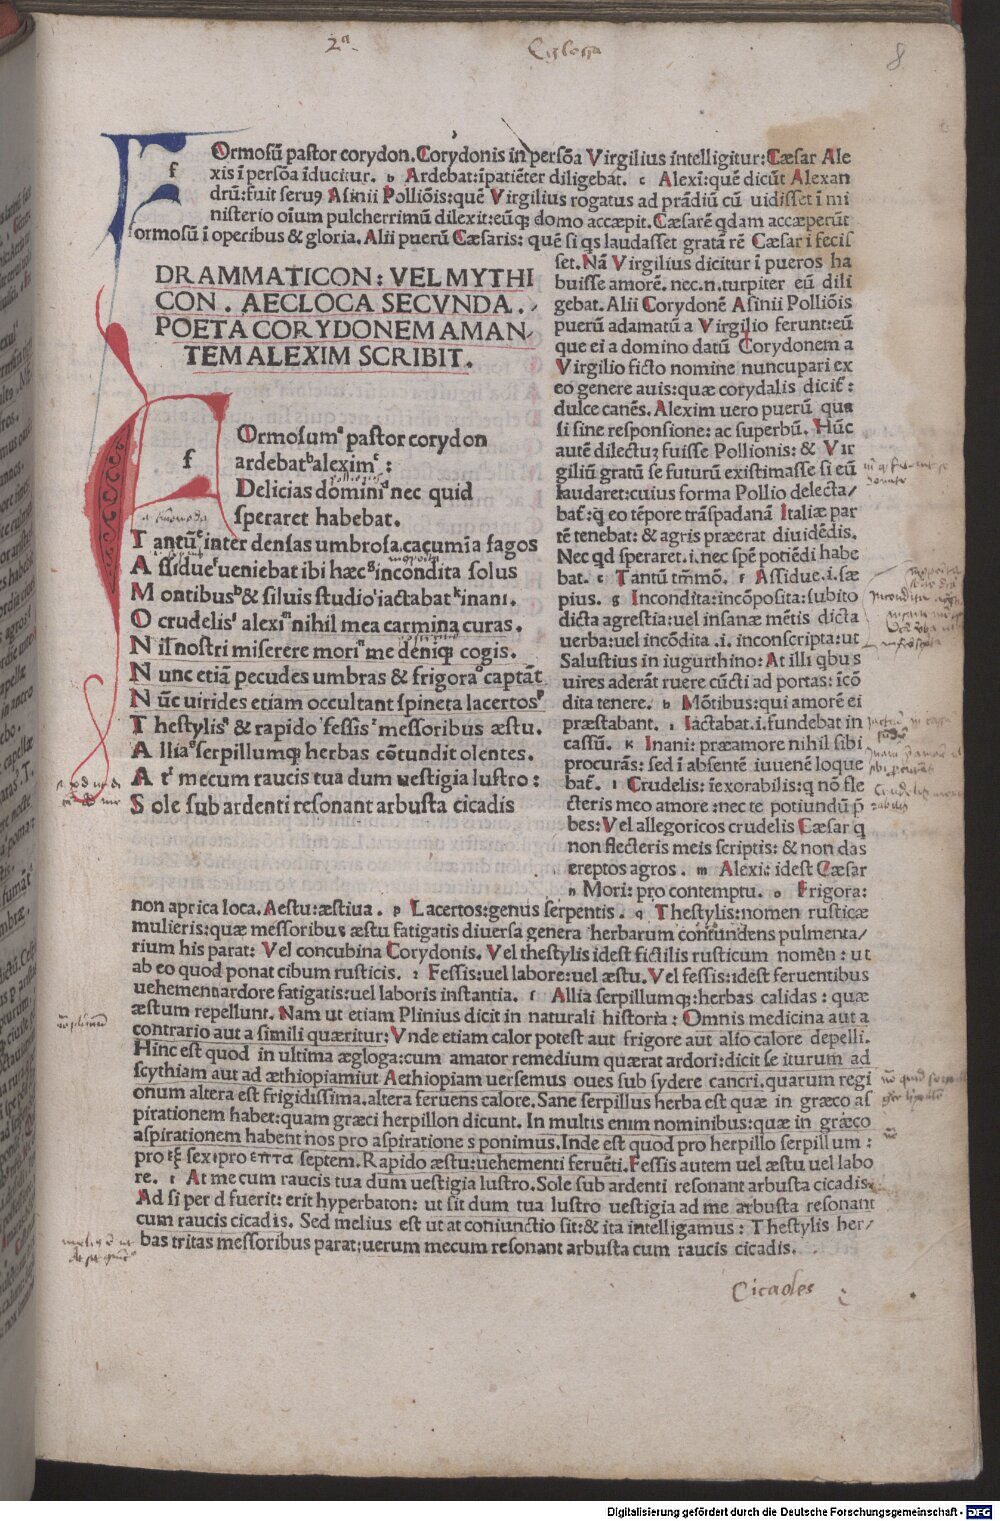 2ª.
Egloga
8
f Ormosū pastor corydon. Corydonis in persōa Virgilius intelligitur: Cæsar Ale
xis ī persōa īducitur. b Ardebat: īpatiēter diligebat. c Alexī: quē dicūt Alexan
drū: fuit seruꝯ Asinii Polliōis: quē Virgilius rogatus ad prādiū cū uidisset ī mi
nisterio oīum pulcherrimū dilexit: eūqꝫ domo accæpit. Cæsarē qdam accæperūt
ormosū ī operibus & gloria. Alii puerū Cæsaris: quē si qs laudasset gratā rē Cæsar i fecis
set. Nā Virgilius dicitur ī pueros ha
buisse amorē. nec. n. turpiter eū dili
gebat. Alii Corydonē Asinii Polliōis
puerū adamatū a Virgilio ferunt: eū
que ei a domino datū Corydonem a
Virgilio ficto nomine nuncupari ex
eo genere auis: quæ corydalis dicit̄:
dulce canēs. Alexim uero puerū qua
si sine responsione: ac superbū. Hūc
autē dilectuꝫ fuisse Pollionis: & Vir
giliū gratū se futurū existimasse si eū
laudaret: cuius forma Pollio delecta/
bat̄: q̄ eo tēpore trāspadanā Italiæ par
tē tenebat: & agris præerat diuidēdis.
Nec qd speraret. i. nec spē potiēdi habe
bat. e Tantū tm̄mō. f Assidue. i. sæ
pius. g Incondita: incōposita: subito
dicta agrestia: uel insanæ mētis dicta
uerba: uel incōdita .i. inconscripta: ut
Salustius in iugurthino: At illi qbus
uires aderāt ruere cūcti ad portas: īcō
dita tenere. h Mōtibus: qui amorē ei
præstabant. i Iactabat. i. fundebat in
cassū. k Inani: præamore nihil sibi
procurās: sed ī absentē iuuenē loque
bat̄. l Crudelis: īexorabilis: q nō fle
cteris meo amore: nec te potiundū p̄
bes: Vel allegoricos crudelis Cæsar q
non flecteris meis scriptis: & non das
ereptos agros. m Alexi: idest Cæsar
n Mori: pro contemptu. o Frigora:
DRAMMATICON: VEL MYTHI
CON. AECLOCA SECVNDA.
POETA CORYDONEM AMAN/
TEM ALEXIM SCRIBIT.
f Ormosumª pastor corydon
ardebatᵇaleximᶜ:
Delicias dominiᵈ nec quid
speraret habebat.
Tantūᵉ inter densas umbrosa cacumīa fagos
Assidueᶠueniebat ibi hæcᵍincondita solus
Montibusʰ& siluis studioⁱiactabatᵏinani.
O crudelisˡ alexiᵐnihil mea carmina curas.
Nil nostri miserere moriⁿme deniqꝫ cogis.
Nunc etiā pecudes umbras & frigoraᵒcaptāt
Nūc uirides etiam occultant spineta lacertosᵖ
Thestylis & rapido fessisʳmessoribus æstu.
Alliaˢserpillumqꝫ herbas cōtundit olentes.
Atᵗ mecum raucis tua dum uestigia lustro:
Sole sub ardenti resonant arbusta cicadis
non aprica loca. Aestu: æstiua. p Lacertos: genus serpentis. q Thestylis: nomen rusticæ
mulieris: quæ messoribus æstu fatigatis diuersa genera herbarum contundens pulmenta/
rium his parat: Vel concubina Corydonis. Vel thestylis idest fictilis rusticum nomen: ut
ab eo quod ponat cibum rusticis. r Fessis: uel labore: uel æstu. Vel fessis: idest feruentibus
uehementi ardore fatigatis: uel laboris instantia. s Allia serpillumqꝫ: herbas calidas: quæ
æstum repellunt. Nam ut etiam Plinius dicit in naturali historia: Omnis medicina aut a
contrario aut a simili quæritur: Vnde etiam calor potest aut frigore aut alio calore depelli.
Hinc est quod in ultima ægloga: cum amator remedium quærat ardori: dicit se iturum ad
scythiam aut ad æthiopiamiut Aethiopiam uersemus oues sub sydere cancri. quarum regi
onum altera est frigidissima. altera feruens calore. Sane serpillus herba est quæ in græco as
pirationem habet: quam græci herpillon dicunt. In multis enim nominibus: quæ in græco
aspirationem habent nos pro aspiratione s ponimus. Inde est quod pro herpillo serpillum:
pro ἑξ sex: pro επτα septem. Rapido æstu: uehementi feruēti. Fessis autem uel æstu uel labo
re. t At mecum raucis tua dum uestigia lustro. Sole sub ardenti resonant arbusta cicadis.
Ad si per d fuerit: erit hyperbaton: ut sit dum tua lustro uestigia ad me arbusta resonant
cum raucis cicadis. Sed melius est ut at coniunctio sit: & ita intelligamus: Thestylis her/
bas tritas messoribus parat: uerum mecum resonant arbusta cum raucis cicadis.
Cicades
Digitalisierung gefördert durch die Deutsche Forschungsgemeinschaft - DFG